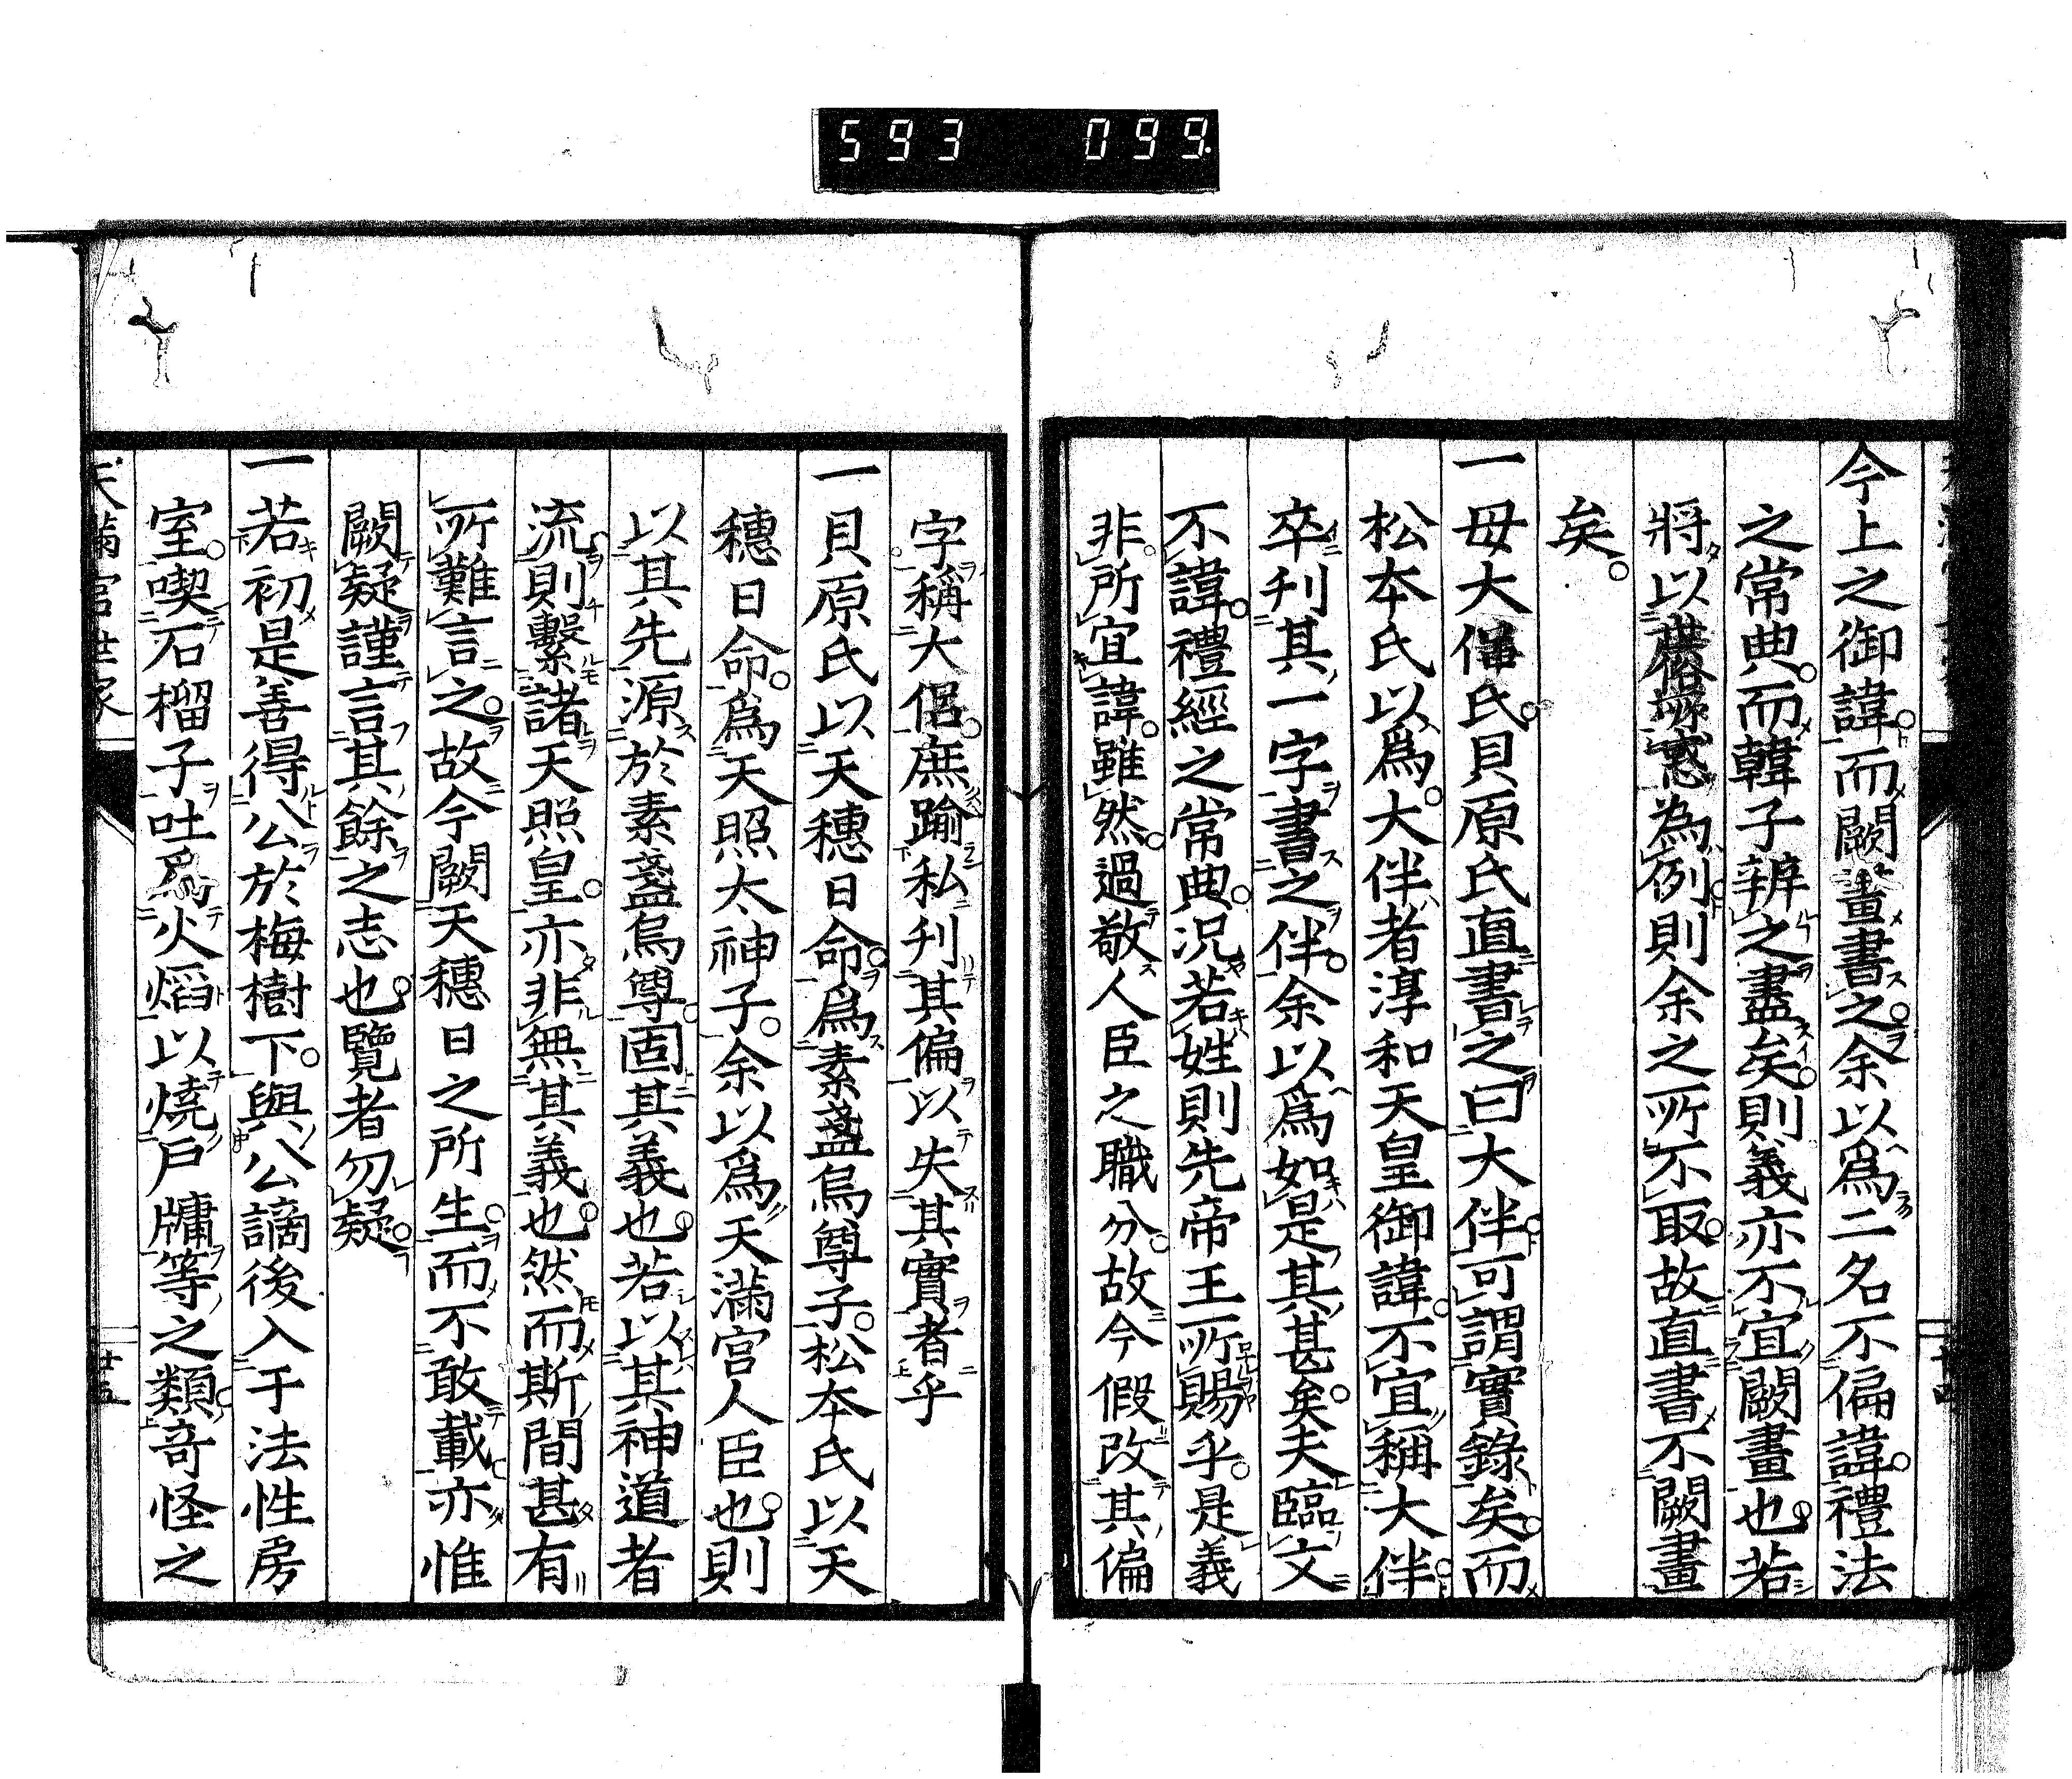 593 099
今上之御諱而闕畫書之余以爲二名不偏諱禮法
之常典而韓子辨之盡矣則義亦不宜闕畫也若
將以為例則余之所不取故直書不闕畫
矣
一母大伴氏貝原氏直書之曰大伴可謂實錄矣而
松本氏以爲大伴者淳和天皇御諱不宜稱大伴
卒刋其一字書之伴余以爲如是其甚矣夫臨文
不諱禮經之常典況若姓則先帝王所賜乎是義
非所宜諱雖然過敬人臣之職分故今假改其偏
字稱大侶庶踰私刋其偏以失其實者乎
一貝原氏以天穗日命爲素盞烏尊子松本氏以天
穗日命爲天照太神子余以爲天滿宮人臣也則
以其先源於素盞烏尊固其義也若以其神道者
流則繫諸天照皇亦非無其義也然而斯間甚有
所難言之故今闕天穗日之所生而不敢載亦惟
闕疑謹言其餘之志也覽者勿疑
一若初是善得公於梅樹下與公謫後入于法性房
室喫石榴子吐爲火焰以燒戶牗等之類奇怪之
天滿宮世家
廿五